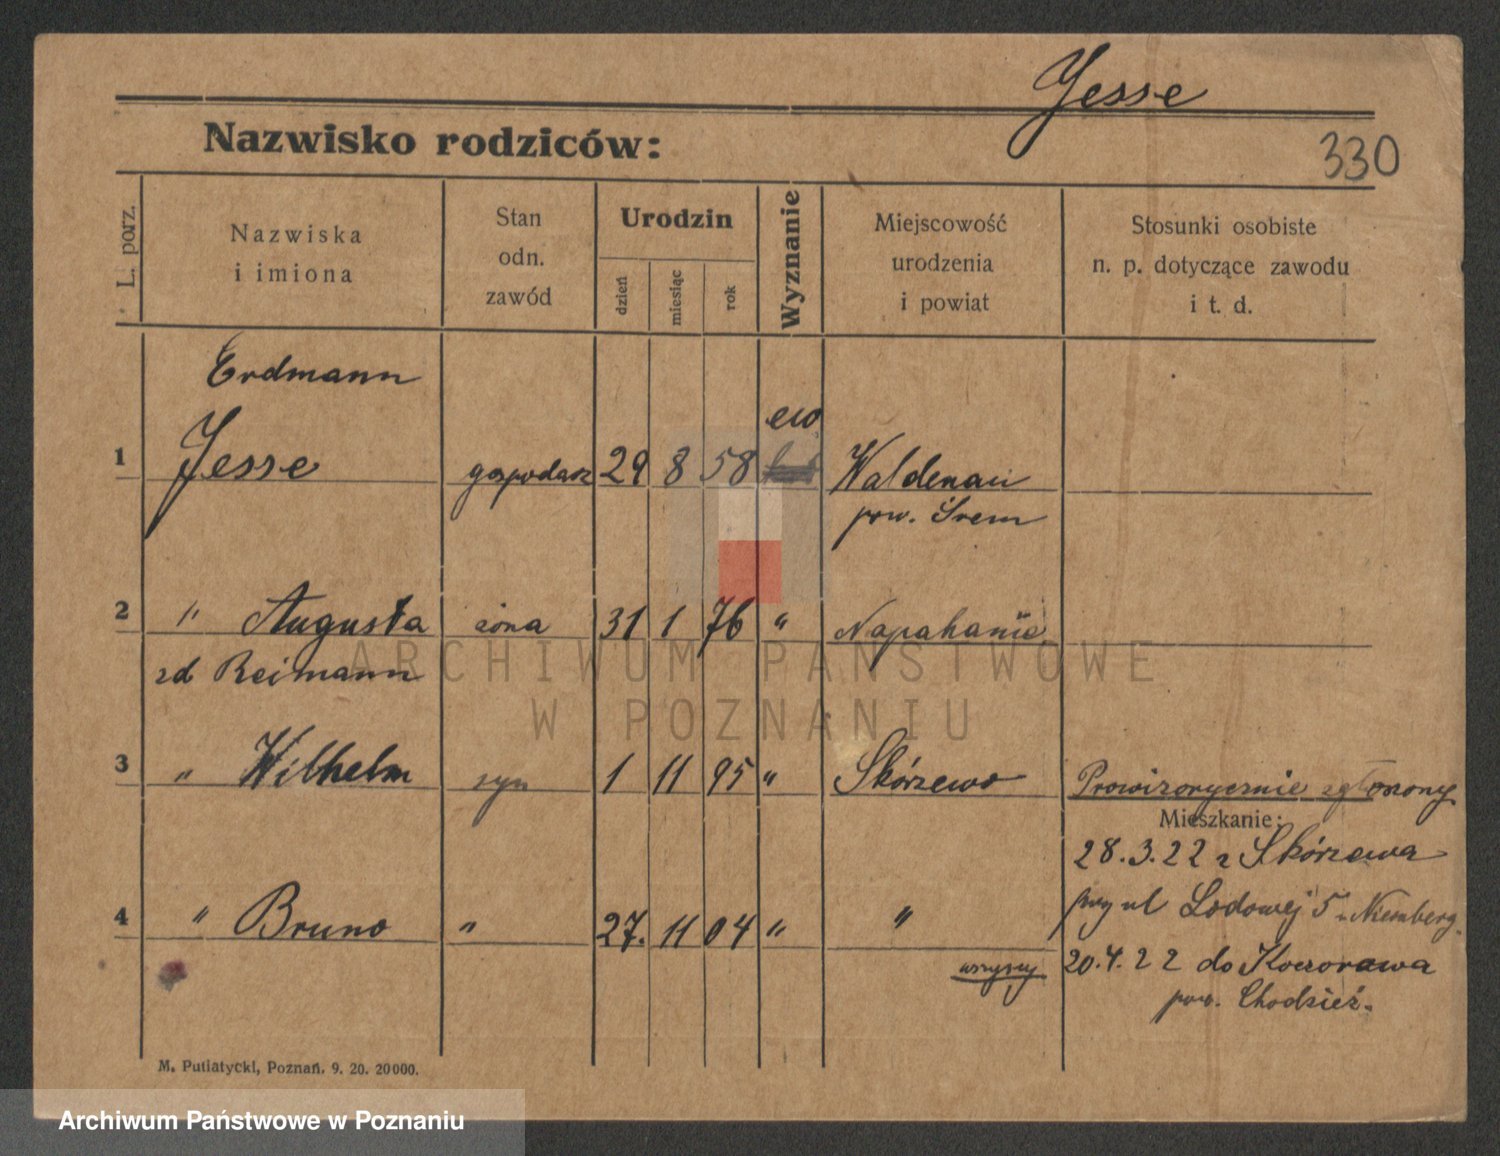 Jesse
Nazwisko rodziców:
330
L. porz.
Nazwiska
i imiona
Stan
odn.
zawód
Urodzin
dzień
miesiąc
rok
Wyznanie
Miejscowość
urodzenia
i powiat
Stosunki osobiste
n. p. dotyczące zawodu
i t. d.
Erdmann
ew
1 Jesse gospodarz 29 8 58 Waldenau
pow. Śrem
2 " Augusta żona 31 1 76 " Napahanie
zd Reimann
3 " Wilhelm syn 1 11 95 " Skórzewo Prowizorycznie zgłoszony
Mieszkanie:
28.3.22 z Skórzewa
przy ul Lodowej 5 u Niemberg.
4 " Bruno " 27. 11 04 " "
wszyscy 20.4.22 do Koczorowa
pow. Chodzież.
M. Putiatycki, Poznań. 9. 20. 20000.
ARCHIWUM PAŃSTWOWE
W POZNANIU
Archiwum Państwowe w Poznaniu